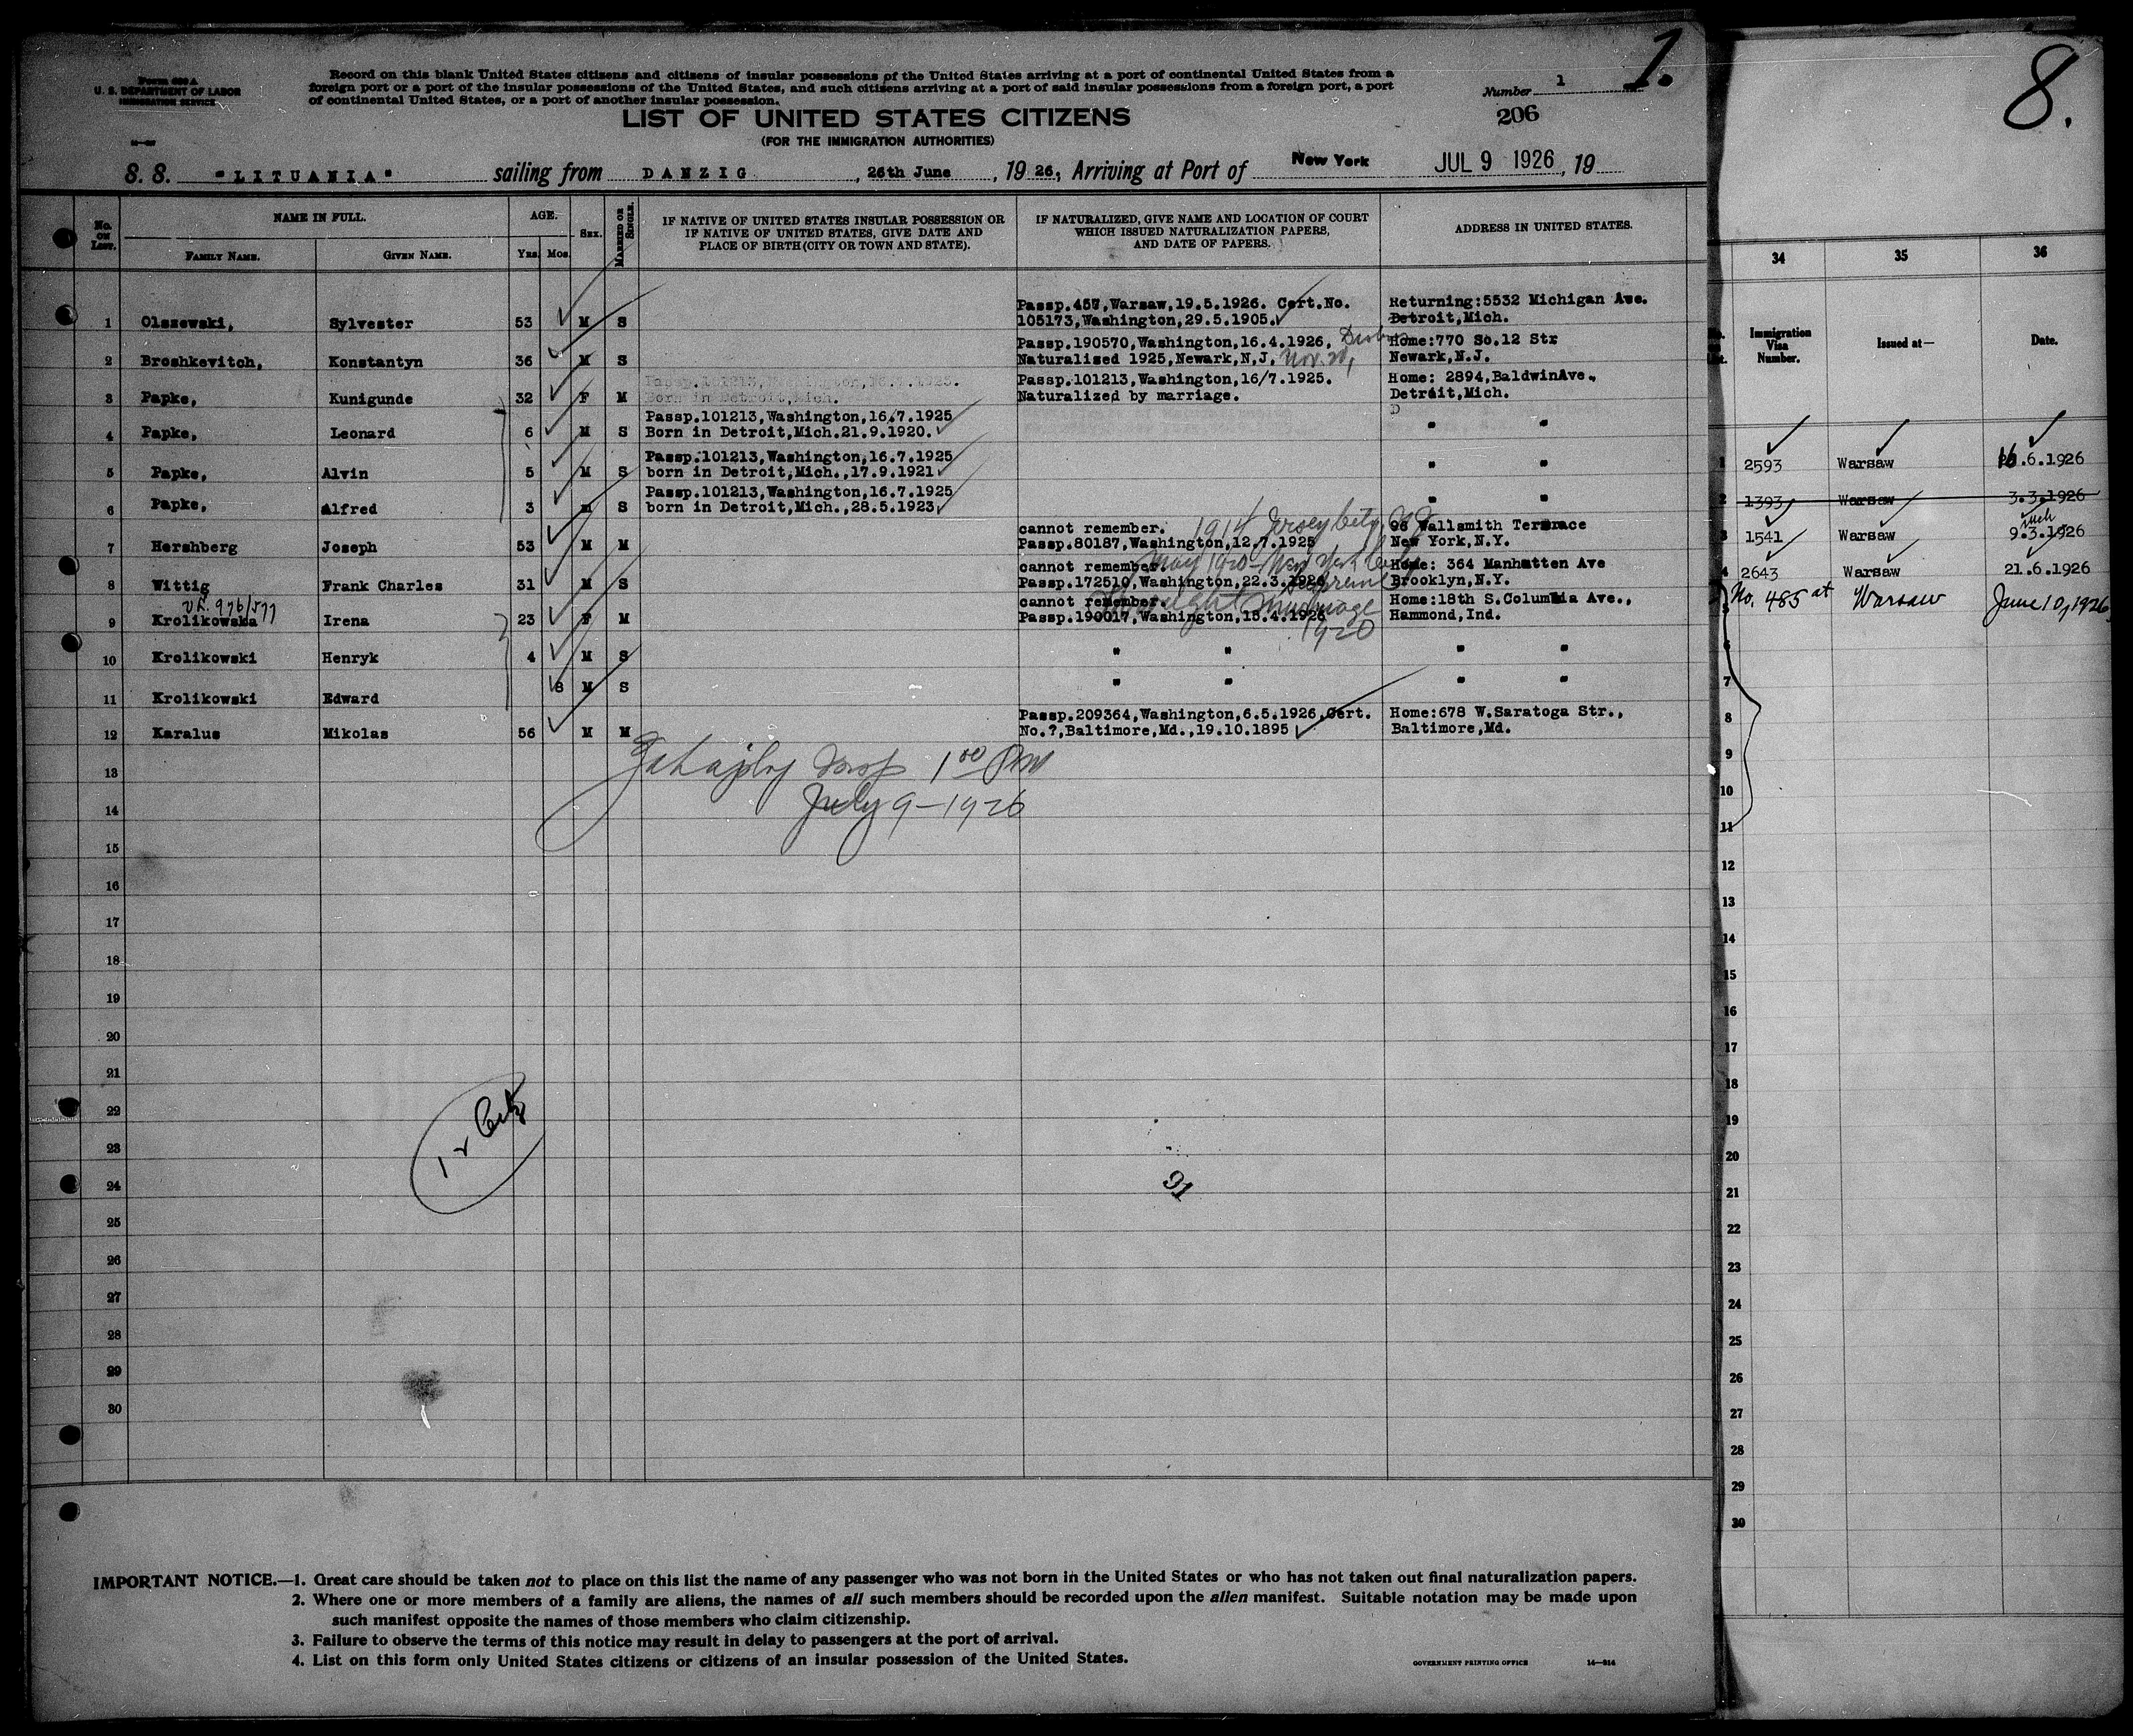 Form 630 A
U. S. DEPARTMENT OF LABOR
IMMIGRATION SERVICE
Record on this blank United States citizens and citizens of insular possessions of the United States arriving at a port of continental United States from a
foreign port or a port of the insular possessions of the United States, and such citizens arriving at a port of said insular possessions from a foreign port, a port
of continental United States, or a port of another insular possession.
Number 1
1.
206
LIST OF UNITED STATES CITIZENS
(FOR THE IMMIGRATION AUTHORITIES)
S. S. "LITUANIA" sailing from DANZIG, 26th June, 1926, Arriving at Port of New York JUL 9 1926, 19
No. ON LIST.
NAME IN FULL.
FAMILY NAME. GIVEN NAME.
AGE.
YRS. MOS.
SEX.
MARRIED OR SINGLE.
IF NATIVE OF UNITED STATES INSULAR POSSESSION OR
IF NATIVE OF UNITED STATES, GIVE DATE AND
PLACE OF BIRTH (CITY OR TOWN AND STATE).
IF NATURALIZED, GIVE NAME AND LOCATION OF COURT
WHICH ISSUED NATURALIZATION PAPERS,
AND DATE OF PAPERS.
ADDRESS IN UNITED STATES.
Passp.457,Warsaw,19.5.1926. Cert.No. Returning:5532 Michigan Ave.
1 Olszewski, Sylvester 53 M S 105173,Washington,29.5.1905. Detroit,Mich.
Passp.190570,Washington,16.4.1926, Home:770 So.12 Str
2 Broshkevitch, Konstantyn 36 M S Naturalised 1925,Newark,N,J, Newark,N.J.
Passp.101213,Washington,16.7.1925. Passp.101213,Washington,16/7.1925. Home: 2894,BaldwinAve.,
3 Papke, Kunigunde 32 F M Born in Detroit,Mich. Naturalized by marriage. Detroit,Mich.
Passp.101213,Washington,16.7.1925
4 Papke, Leonard 6 M S Born in Detroit,Mich.21.9.1920. " "
Passp.101213,Washington,16.7.1925
5 Papke, Alvin 5 M S born in Detroit,Mich.,17.9.1921 " "
Passp.101213,Washington,16.7.1925
6 Papke, Alfred 3 m S born in Detroit,Mich.,28.5.1923 " "
cannot remember. 1914 Jersey City, N.J. 96 Wallsmith Terrrace
7 Hershberg Joseph 53 M M Passp.80187,Washington,12.7.1925 New York,N.Y.
cannot remember. May 1920 New York City Home: 364 Manhatten Ave
8 Wittig Frank Charles 31 M S Passp.172510,Washington,22.3.1926 Supreme Brooklyn,N.Y.
cannot remember. Through marriage Home:18th S.Columbia Ave.,
9 Krolikowska Irena 23 F M Passp.190017,Washington,15.4.1926 Hammond,Ind.
1920
10 Krolikowski Henryk 4 M S " " " "
11 Krolikowski Edward 8 M S " " " "
Passp.209364,Washington,6.5.1926,Cert. Home:678 W.Saratoga Str.,
12 Karalus Mikolas 56 M M No.?,Baltimore,Md.,19.10.1895 Baltimore,Md.
13
1 00 PM
14
July 9-1926
15
16
17
18
19
20
21
22
23
24
25
26
27
28
29
30
91
IMPORTANT NOTICE.—1. Great care should be taken not to place on this list the name of any passenger who was not born in the United States or who has not taken out final naturalization papers.
2. Where one or more members of a family are aliens, the names of all such members should be recorded upon the alien manifest. Suitable notation may be made upon
such manifest opposite the names of those members who claim citizenship.
3. Failure to observe the terms of this notice may result in delay to passengers at the port of arrival.
4. List on this form only United States citizens or citizens of an insular possession of the United States.
GOVERNMENT PRINTING OFFICE 14—514
8.
34 35 36
Immigration Visa Number. Issued at— Date.
1 2593 Warsaw 16.6.1926
2 1393 Warsaw 3.3.1926
3 1541 Warsaw 9.3.1926
4 2643 Warsaw 21.6.1926
5 No. 485 at Warsaw June 10, 1926
6
7
8
9
10
11
12
13
14
15
16
17
18
19
20
21
22
23
24
25
26
27
28
29
30